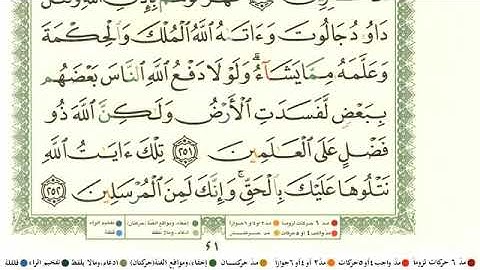 دَاوُۥدُ جَالُوتَ وَءَاتَىٰهُ ٱللَّهُ ٱلْمُلْكَ وَٱلْحِكْمَةَ
وَعَلَّمَهُۥ مِمَّا يَشَآءُ ۗ وَلَوْلَا دَفْعُ ٱللَّهِ ٱلنَّاسَ بَعْضَهُم
بِبَعْضٍ لَّفَسَدَتِ ٱلْأَرْضُ وَلَٰكِنَّ ٱللَّهَ ذُو
فَضْلٍ عَلَى ٱلْعَٰلَمِينَ ٢٥١ تِلْكَ ءَايَٰتُ ٱللَّهِ
نَتْلُوهَا عَلَيْكَ بِٱلْحَقِّ ۚ وَإِنَّكَ لَمِنَ ٱلْمُرْسَلِينَ ٢٥٢
٤١
مد ٦ حركات لزوما مد واجب ٤ او ٥ حركات مد ٢ او ٤ او ٦ جوازا مد حركتان إخفاء، ومواقع الغنة (حركتان) ادغام، ومالا يلفظ تفخيم الراء قلقلة